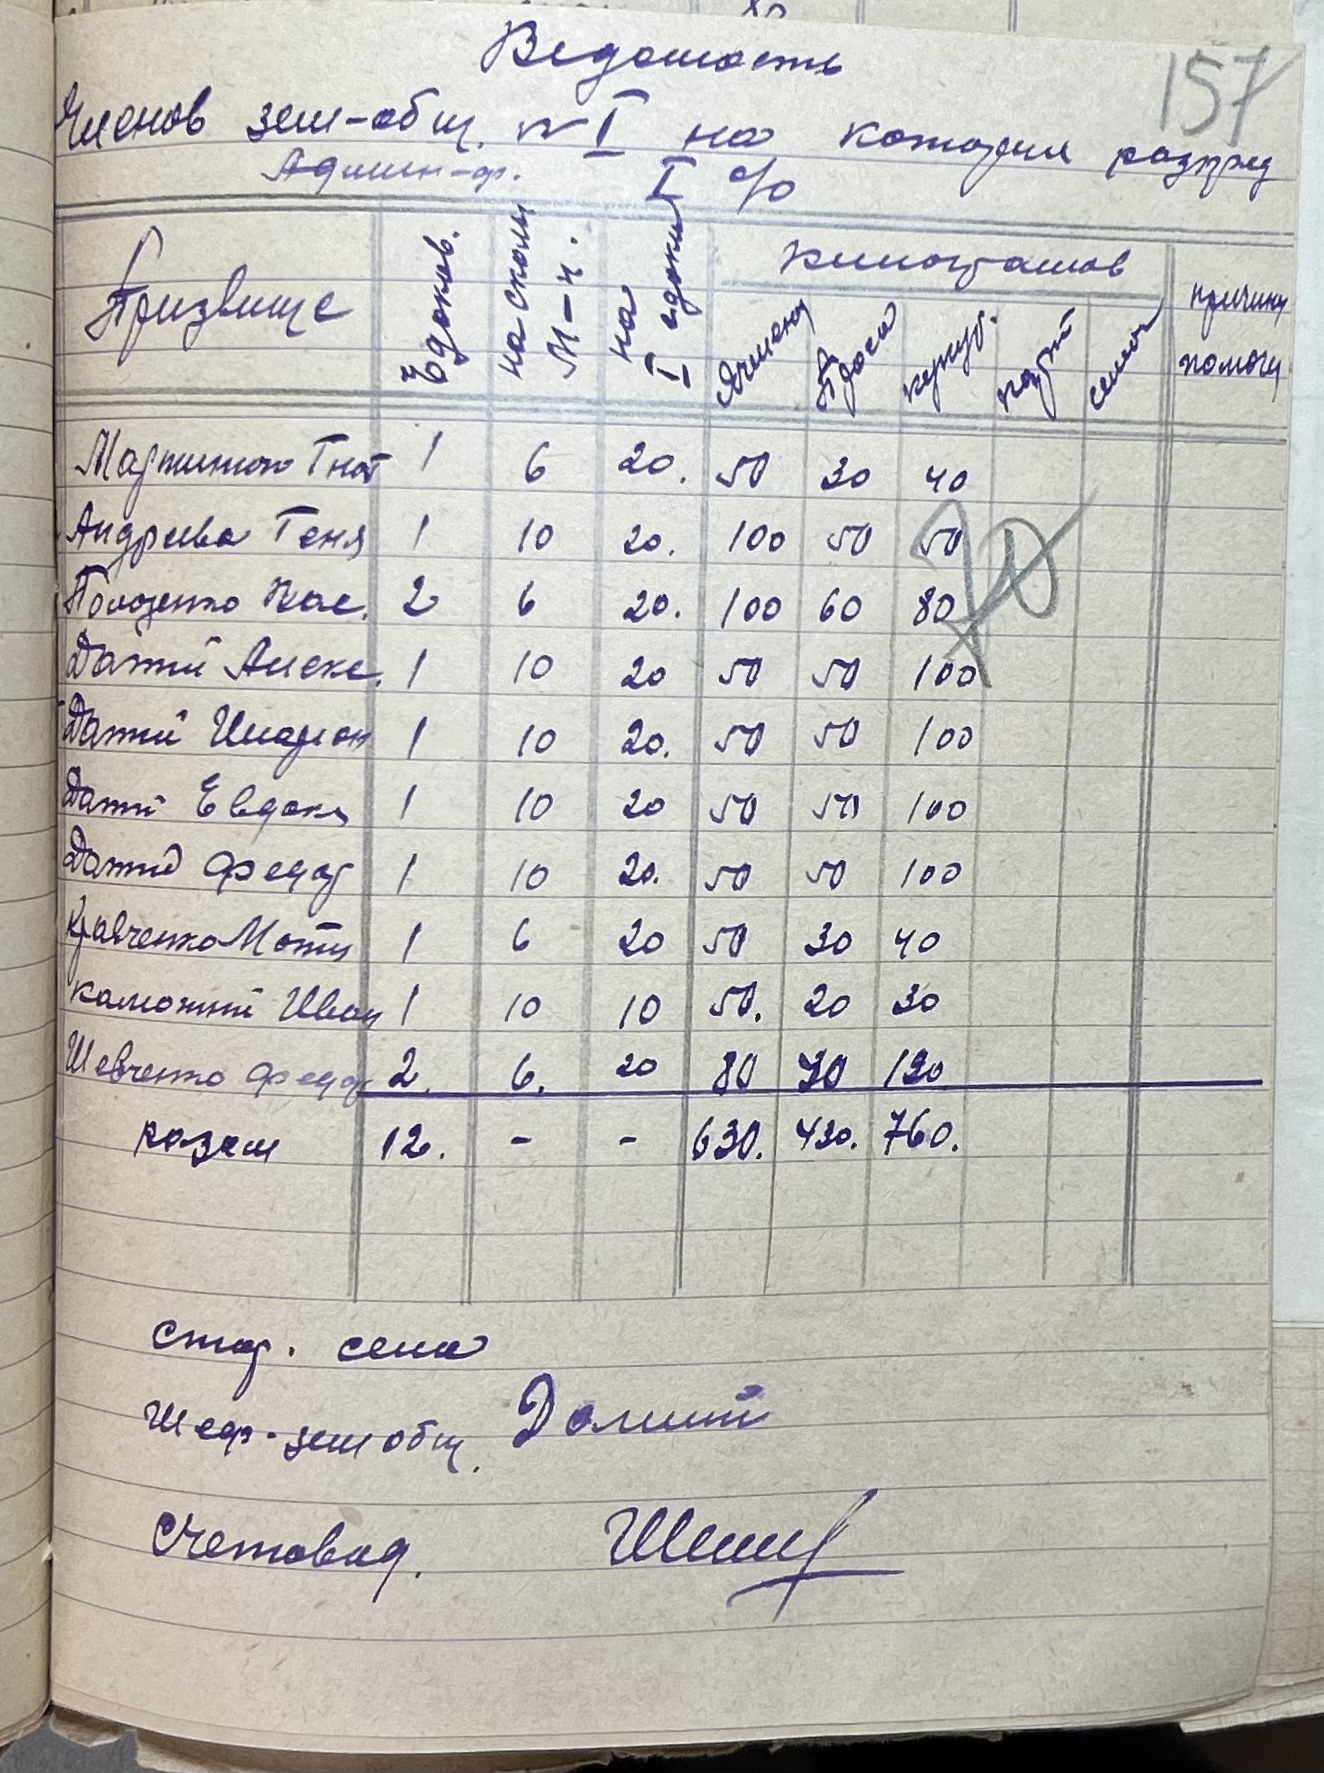 Ведомость
157
Членов зем-общ. №I на которих розпред
Админ-ф. I %
Призвище
Едоков.
на сколь. М-ч.
на I едока
килограмов
Ячменя
Проса
кукур.
карт
семеч
причины помощи
Мартинюк Гнат 1 6 20. 50 30 40
Андреева Геня 1 10 20. 100 50 50
Полозенко Кас. 2 6 20. 100 60 80
Датий Алекс. 1 10 20 50 50 100
Датий Иларион 1 10 20. 50 50 100
Датий Евдоким 1 10 20 50 50 100
Датий Федор 1 10 20. 50 50 100
Кравченко Мотя 1 6 20 50 30 40
Каможний Иван 1 10 10 50. 20 30
Шевченко Федор 2. 6. 20 80 30 120
разом 12. - - 630. 420. 760.
Стар. села
Шеф-зем общ. Долший
Счетовод.